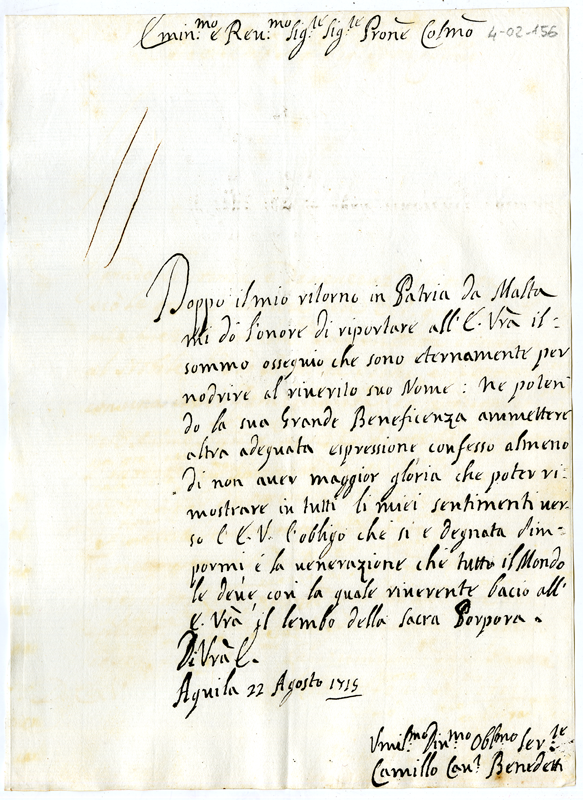 Emin.mo e Reu.mo Sig.re Sig.re Prone Colmo 4-02-156
Doppo il mio ritorno in Patria da Malta
mi dò l'onore di riportare all'E. Vrã il
sommo ossequio che sono eternamente per
nodrire al riuerito suo Nome: Ne poten-
do la sua Grande Beneficenza ammettere
altra adequata espressione confesso almeno
di non auer maggior gloria che poter ri-
mostrare in tutti li miei sentimenti uer-
so l'E.V. l'obligo che si è degnata d'im-
pormi é la uenerazione che tutto il Mondo
le deue con la quale riuerente bacio all'
E. Vrã il lembo della Sacra Porpora.
Di Vrã E.
Aquila 22 Agosto 1715
Vmil.mo Diu.mo Obl.mo Ser.re
Camillo Cau.r Benedetti